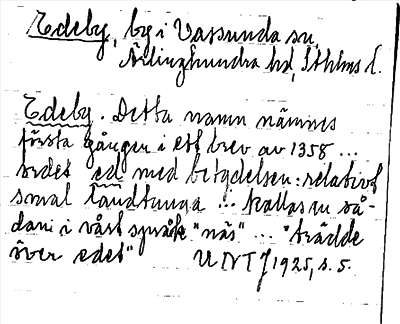 Edeby, by i Vassunda sn,
Ärlinghundra hd, Sthlms l.
Edeby. Detta namn nämnes
första gången i ett brev av 1358 ...
ordet ed med betydelsen: relativt
smal landtunga ... kallas nu så-
dan i vårt språk "näs" ... "trädde
över edet" UNT / 1925, s. 5.